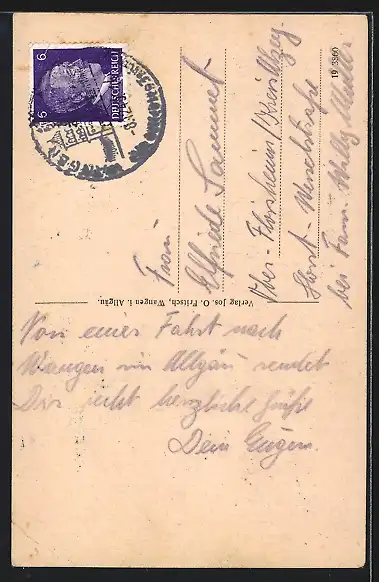 6 DEUTSCHES REICH 6
WANGEN
19 3860
Frau
Elfriede Sammet
Ober-Flörsheim / Kreis Alzey
Horst-Wessel-straße
bei Fam. Willy Müller
Verlag Jos. O. Fritsch, Wangen i. Allgäu.
Von einer Fahrt nach
Wangen im Allgäu sendet
Dir recht herzliche Grüße
Dein Eugen.